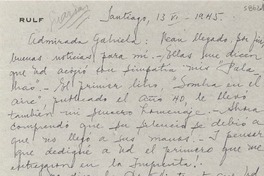 RULF
Santiago, 13 VI - 1945.
Admirada Gabriela: Han llegado por fin
buenas noticias para mí. - Ellas me dicen
que Ud acogió con simpatía mis "Pata
El primer libro, "Sombra en el
aire", publicado el Año 40, le llevó
también mi primero homenaje. - Ahora
comprendo que su silencio se debió a
que no llegó a sus manos. I pensar
que dediqué a Ud el primero que me
entregaron en la Imprenta!